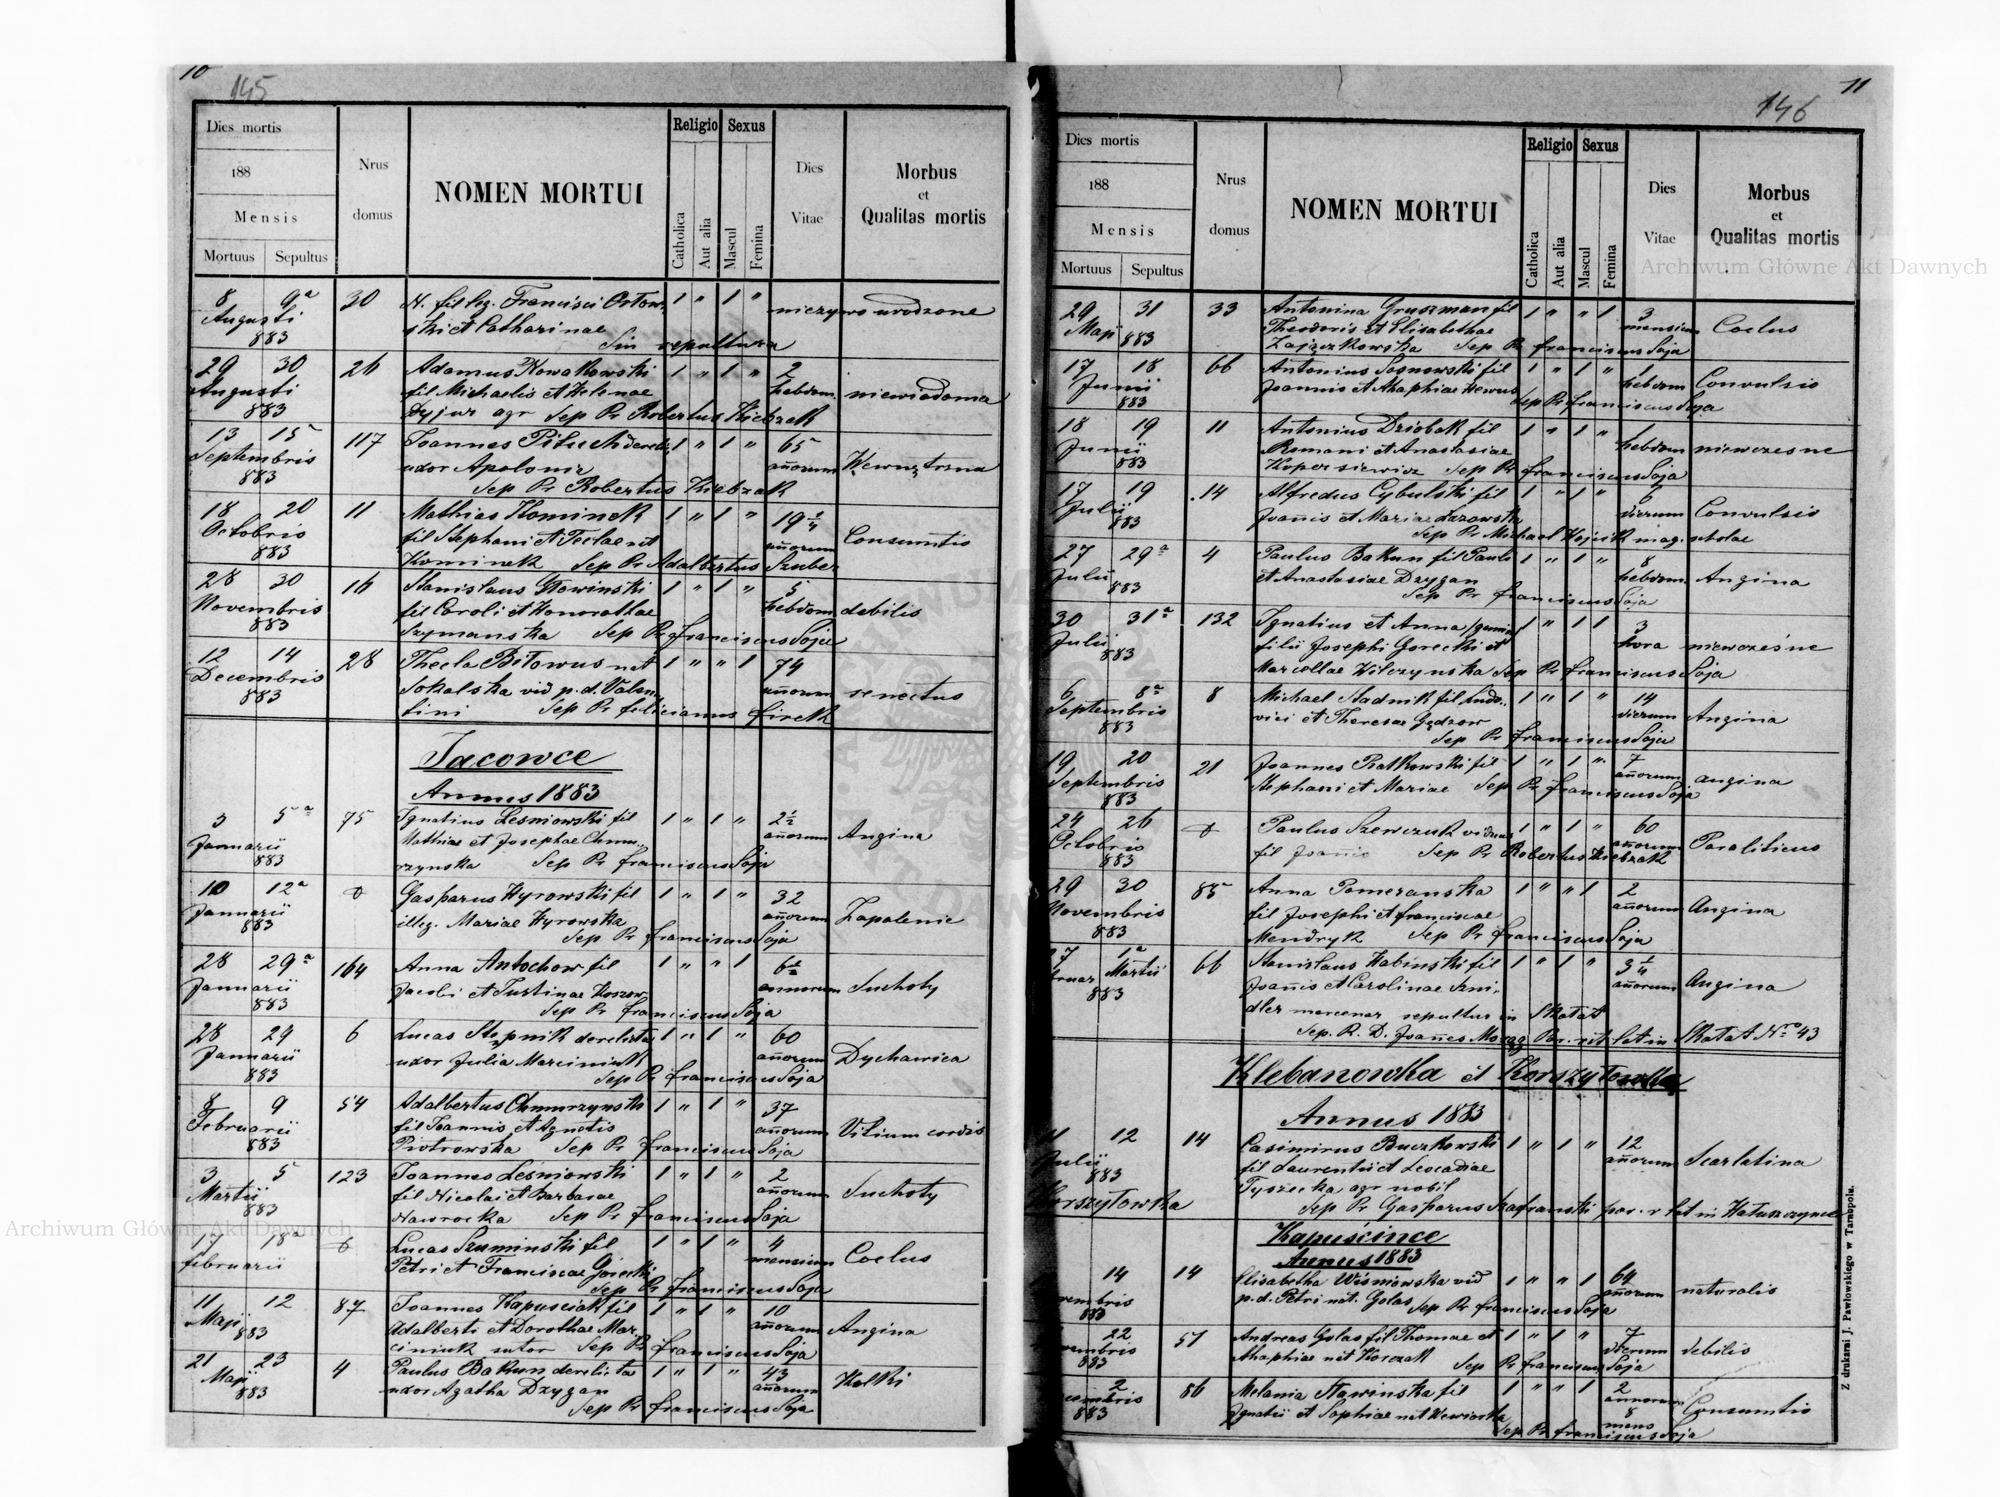 10
145
Dies mortis
188
Mensis
Mortuus Sepultus
Nrus domus
NOMEN MORTUI
Religio
Catholica
Aut alia
Sexus
Mascul
Femina
Dies Vitae
Morbus
et
Qualitas mortis
8 9a 30 N. fil lig. Francisci Ostow- 1 " 1 " nieżywo urodzone
Augusti ski et Catharinae
883 Sin sepultura
29 30 26 Adamus Nowakowski 1 " 1 " 2
Augusti fil Michaelis et Helenae hebdom. niewiadoma
883 agr Sep Pr Robertus Kiebzak
13 15 117 Joannes derelic. 1 " 1 " 65
Septembris uxor Apolonia annorum Wewnętrzna
883 Sep Pr Robertus Kiebzak
18 20 11 Mathias Kominek 1 " 1 " 19
Octobris fil Stephani et Teclae nat annorum Consumtio
883 Kominek Sep Pr Adalbertus Szuber
28 30 16 Stanislaus Głowinski 1 " 1 " 5
Novembris fil Caroli et Honorathae hebdom debilis
883 Szymanska Sep Pr franciscus Soja
12 14 28 Thecla Bitowus nat 1 " " 1 74
Decembris Sokalska vid p. d. Valen- annorum senectus
883 tini Sep Pr felicianus firek
Jacowce
Annus 1883
3 5a 75 Ignatius Lesniowski fil 1 " 1 " 2½
Januarii Mathiae et Josephae Chmu- annorum Angina
883 rzynska Sep Pr franciscus Soja
10 12a Gasparus Wyrowski fil 1 " 1 " 32
Januarii illeg. Mariae Wyrowska annorum Zapalenie
883 Sep Pr franciscus Soja
28 29a 164 Anna Antochow fil 1 " " 1 6½
Januarii Jacobi et Justinae annorum Suchoty
883 Sep Pr franciscus Soja
28 29 6 Lucas Stepnik derelicta 1 " 1 " 60
Januarii uxor Julia Marciniuk annorum Dychawica
883 Sep Pr franciscus Soja
8 9 54 Adalbertus Chmurzynski 1 " 1 " 37
Februarii fil Joannis et Agnetis annorum Vitium cordis
883 Piotrowska Sep Pr franciscus Soja
3 5 123 Joannes Lesniowski 1 " 1 " 2
Martii fil Nicolai et Barbarae annorum Suchoty
883 Nawrocka Sep Pr franciscus Soja
17 18a Lucas Szuminski fil 1 " 1 " 4
februarii Petri et Franciscae Gorecki mensium Coelus
Sep Pr franciscus Soja
11 12 87 Joannes Kapusciak fil 1 " 1 " 10
Maji Adalberti et Dorothae Mar- annorum Angina
883 ciniuk sutor Sep Pr franciscus Soja
21 23 4 Paulus Bakun derelicta 1 " 1 " 43
Maji uxor Agatha Dzygan annorum Kolki
883 Sep Pr franciscus Soja
11
146
Dies mortis
188
Mensis
Mortuus Sepultus
Nrus domus
NOMEN MORTUI
Religio
Catholica
Aut alia
Sexus
Mascul
Femina
Dies Vitae
Morbus
et
Qualitas mortis
29 31 33 Antonina Gruszman fil 1 " " 1 3
Maji Theodoris et Elisabethae mensium Coelus
883 Zajączkowska Sep Pr franciscus Soja
17 18 66 Antonius Sosnowski fil 1 " 1 " 1
Junii Joannis et Ahaphiae hebdom Convulsio
883 Sep Pr franciscus Soja
18 19 11 Antonius Dziobak fil 1 " 1 "
Junii Romani et Anastasiae hebdom niewczesne
883 Sep Pr franciscus Soja
17 19 14 Alfredus Cybulski fil 1 " 1 " 6
Julii Joanis et Maria Lazowska dierum Convulsio
883 Sep Pr Michael mag. scholae
27 29a 4 Paulus Bakun fil Pauli 1 " 1 " 8
Julii et Anastasiae Dzygan hebdom Angina
883 Sep Pr franciscus Soja
30 31a 132 Ignatius et Anna gemini 1 " 1 1 3
Julii filii Josephi Gorecki et hora niewcześne
883 Marcellae Wilczynska Sep Pr franciscus Soja
6 8a 8 Michael Sadnik fil Ludo- 1 " 1 " 14
Septembris vici et Theresae dierum Angina
883 Sep Pr franciscus Soja
19 20 21 Joannes Piatkowski fil 1 " 1 " 7
Septembris Stephani et Mariae Sep Pr franciscus Soja annorum angina
883
24 26 Paulus Szewczuk viduus 1 " 1 " 60
Octobris fil Joannis Sep Pr Robertus Kiebzak annorum Paraliticus
883
29 30 85 Anna Pomeranska 1 " " 1 2
Novembris fil Josephi et franciscae annorum Angina
883 Mendryk Sep Pr franciscus Soja
7 1a Martii 66 Stanislaus Kabinski fil 1 " 1 " 3¼
Joanis et Carolinae Szni- annorum Angina
883 dler mercenar sepultus in Skałat
Sep. R. D. Joannes Par. rit lat in Skałat Nro 43
Klebanowka et Korszyłowka
Annus 1883
11 12 14 Casimirus Buczkowski 1 " 1 " 12
Julii fil Laurentii et Leocadiae annorum Scarlatina
883 Tyszecka agr nobil
Korszyłowka Sep Pr Gasparus Szafranski par. r lat in
Kapuścince
Annus 1883
14 14 Elisabetha Wiśniowska vid 1 " " 1 64
vembris p. d. Petri nat. Golas Sep Pr franciscus Soja annorum naturalis
883
22 57 Andreas Golas fil Thomae et 1 " 1 " 7
vembris Ahaphiae nat Korczak dierum debilis
883 Sep Pr franciscus Soja
2 86 Melania Sławinska fil 1 " " 1 2
cembris Ignatii et Sophiae nat annorum Consumtio
883 8 mens
Sep Pr franciscus Soja
Z drukarni J. Pawłowskiego w Tarnopolu.
Archiwum Główne Akt Dawnych
Archiwum Główne Akt Dawnych